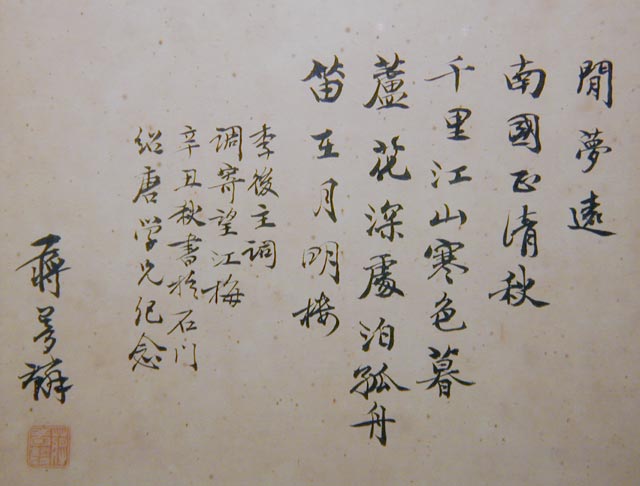 閒夢遠
南國正清秋
千里江山寒色暮
蘆花深處泊孤舟
笛在月明楼
李後主調
調寄望江梅
辛丑秋書於石门
紹唐学兄纪念
蔣夢麟